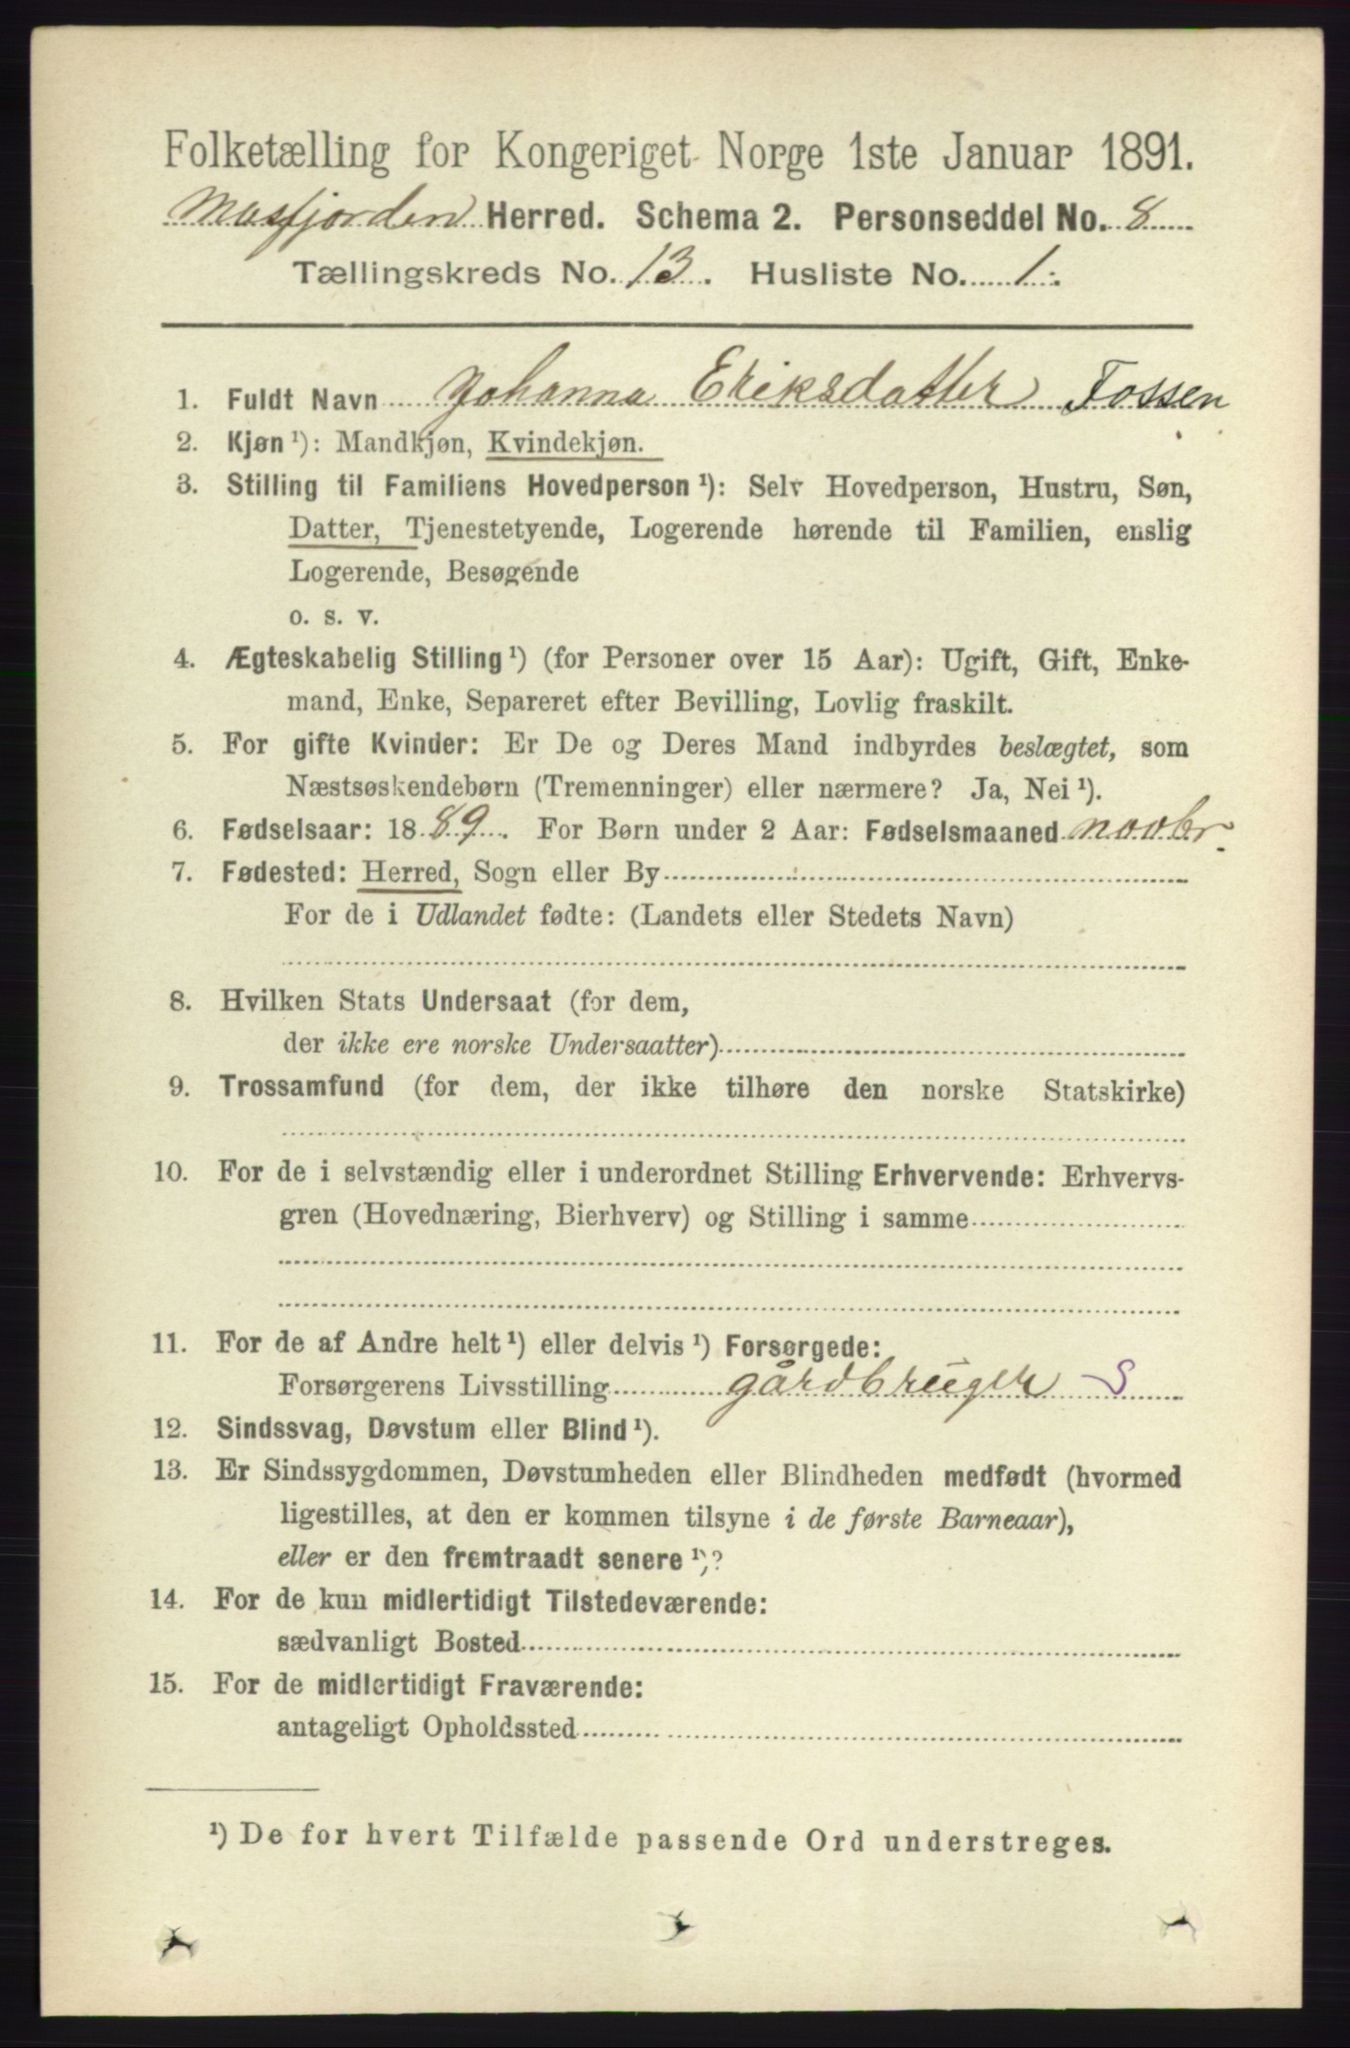 Folketælling for Kongeriget Norge 1ste Januar 1891.
Masfjorden Herred. Schema 2. Personseddel No. 8
Tællingskreds No. 13. Husliste No. 1.
1. Fuldt Navn Johanna Eriksdatter Fossen
2. Kjøn ¹): Mandkjøn, Kvindekjøn.
3. Stilling til Familiens Hovedperson ¹): Selv Hovedperson, Hustru, Søn,
Datter, Tjenestetyende, Logerende hørende til Familien, enslig
Logerende, Besøgende
o. s. v.
4. Ægteskabelig Stilling ¹) (for Personer over 15 Aar): Ugift, Gift, Enke-
mand, Enke, Separeret efter Bevilling, Lovlig fraskilt.
5. For gifte Kvinder: Er De og Deres Mand indbyrdes beslægtet, som
Næstsøskendebørn (Tremenninger) eller nærmere? Ja, Nei ¹).
6. Fødselsaar: 1889. For Børn under 2 Aar: Fødselsmaaned novbr.
7. Fødested: Herred, Sogn eller By
For de i Udlandet fødte: (Landets eller Stedets Navn)
8. Hvilken Stats Undersaat (for dem,
der ikke ere norske Undersaatter)
9. Trossamfund (for dem, der ikke tilhøre den norske Statskirke)
10. For de i selvstændig eller i underordnet Stilling Erhvervende: Erhvervs-
gren (Hovednæring, Bierhverv) og Stilling i samme
11. For de af Andre helt ¹) eller delvis ¹) Forsørgede:
Forsørgerens Livsstilling gårdbruger S
12. Sindssvag, Døvstum eller Blind ¹).
13. Er Sindssygdommen, Døvstumheden eller Blindheden medfødt (hvormed
ligestilles, at den er kommen tilsyne i de første Barneaar),
eller er den fremtraadt senere ¹)?
14. For de kun midlertidigt Tilstedeværende:
sædvanligt Bosted
15. For de midlertidigt Fraværende:
antageligt Opholdssted
¹) De for hvert Tilfælde passende Ord understreges.